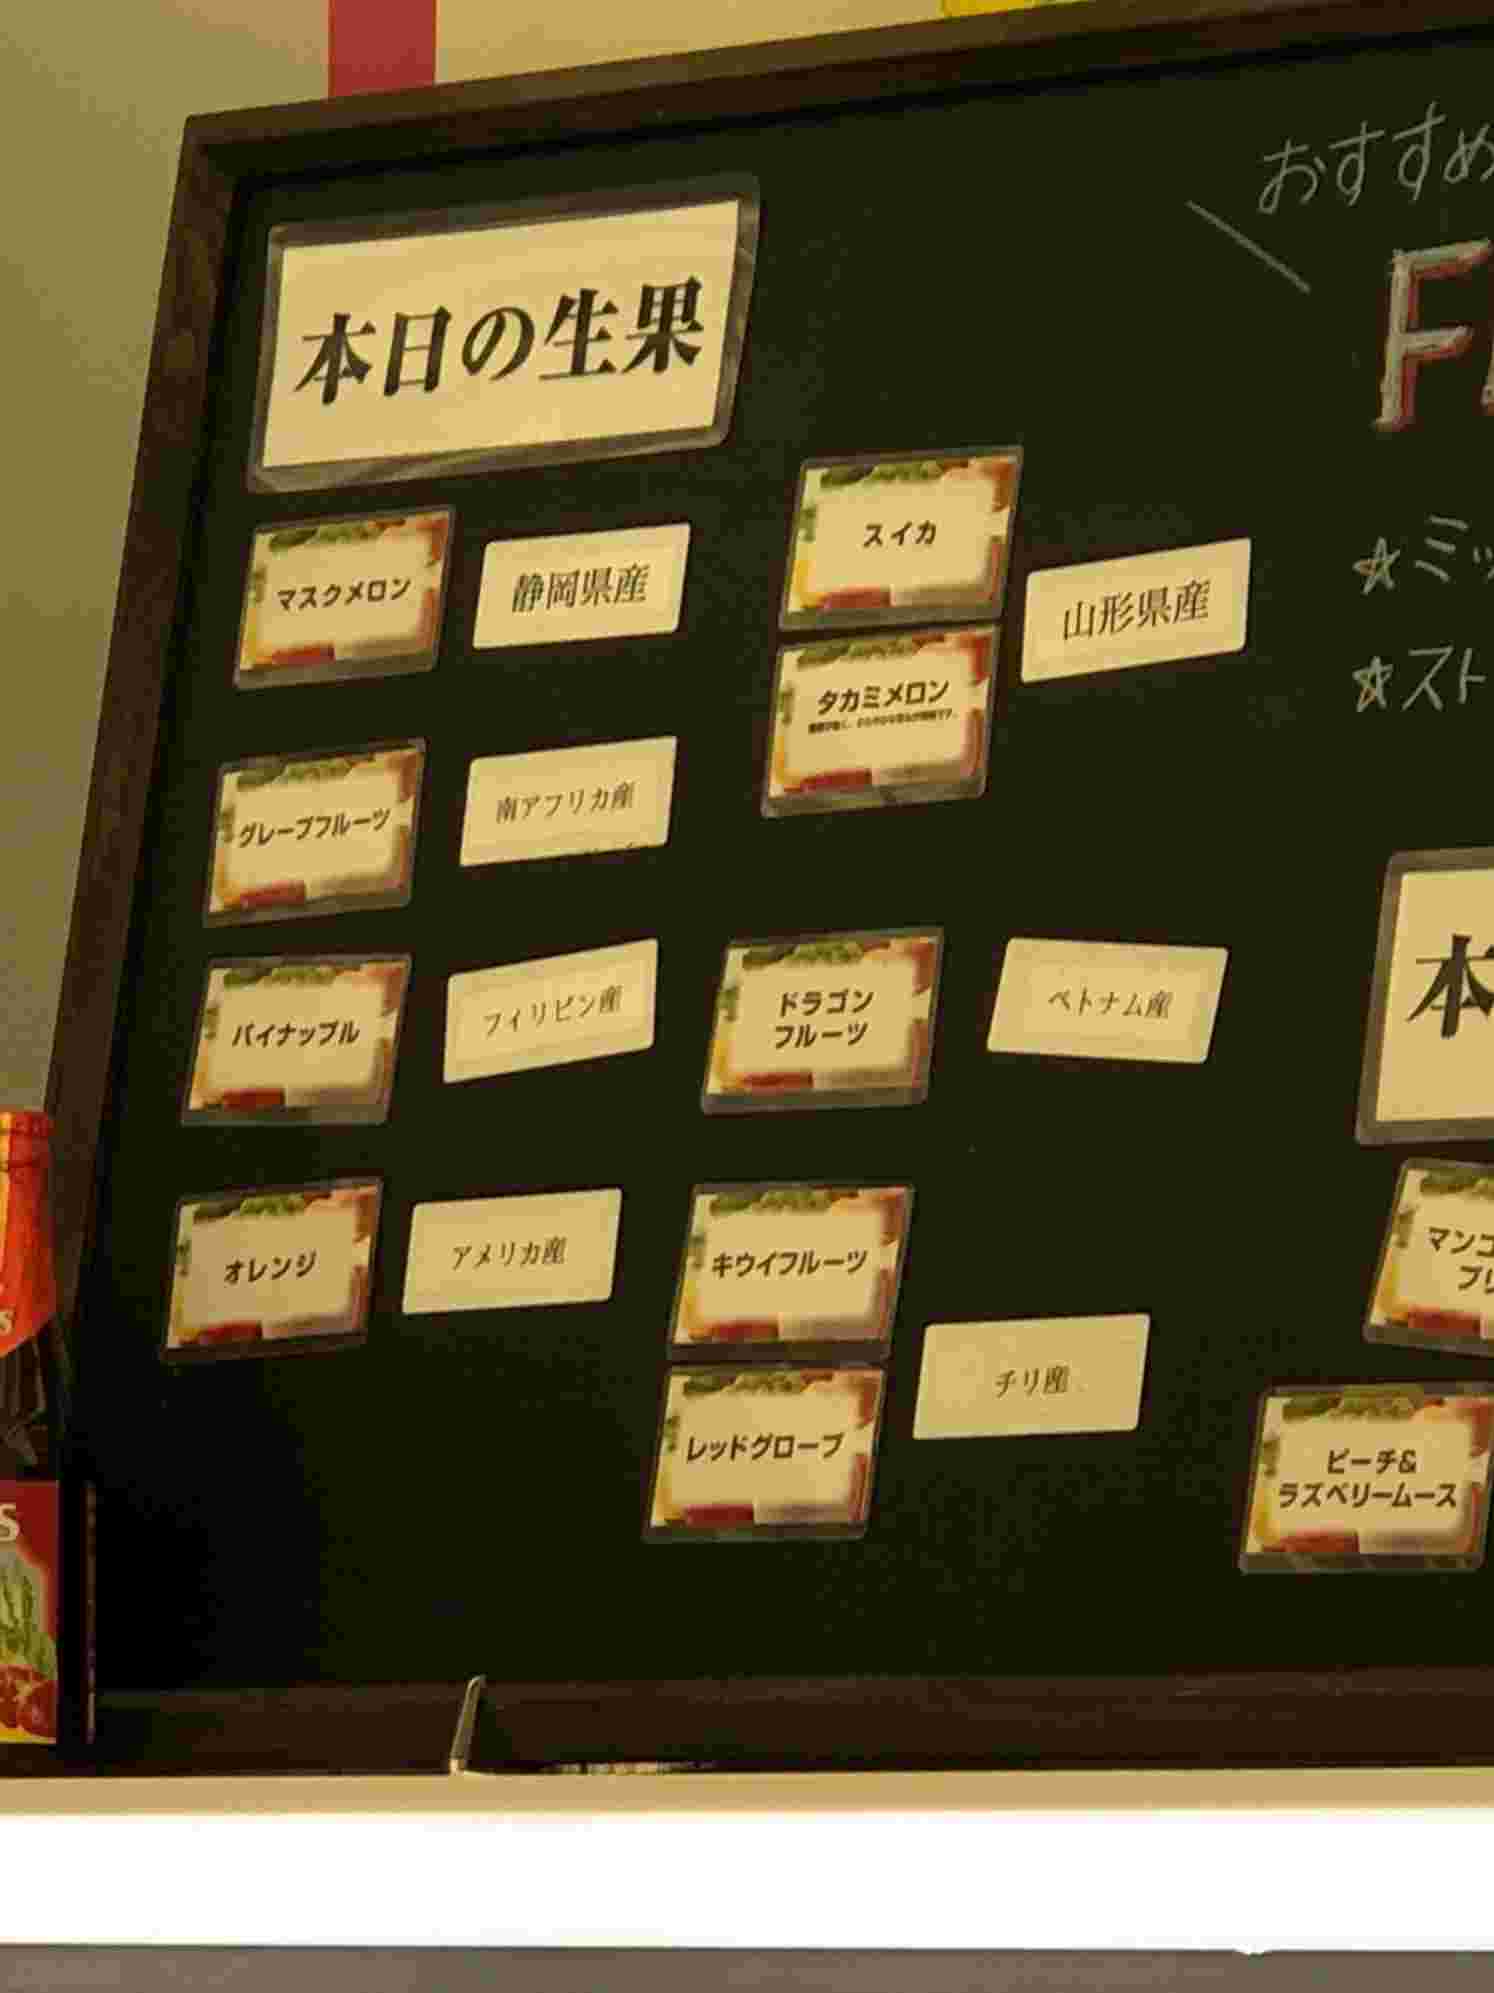 本日の生果
マスクメロン
静岡県産
スイカ
タカミメロン
山形県産
グレープフルーツ
南アフリカ産
パイナップル
フィリピン産
ドラゴン
フルーツ
ベトナム産
オレンジ
アメリカ産
キウイフルーツ
レッドグローブ
チリ産
おすすめ
F
☆ミッ
☆スト
本
マンゴ
プリ
ピーチ&
ラズベリームース
S
S